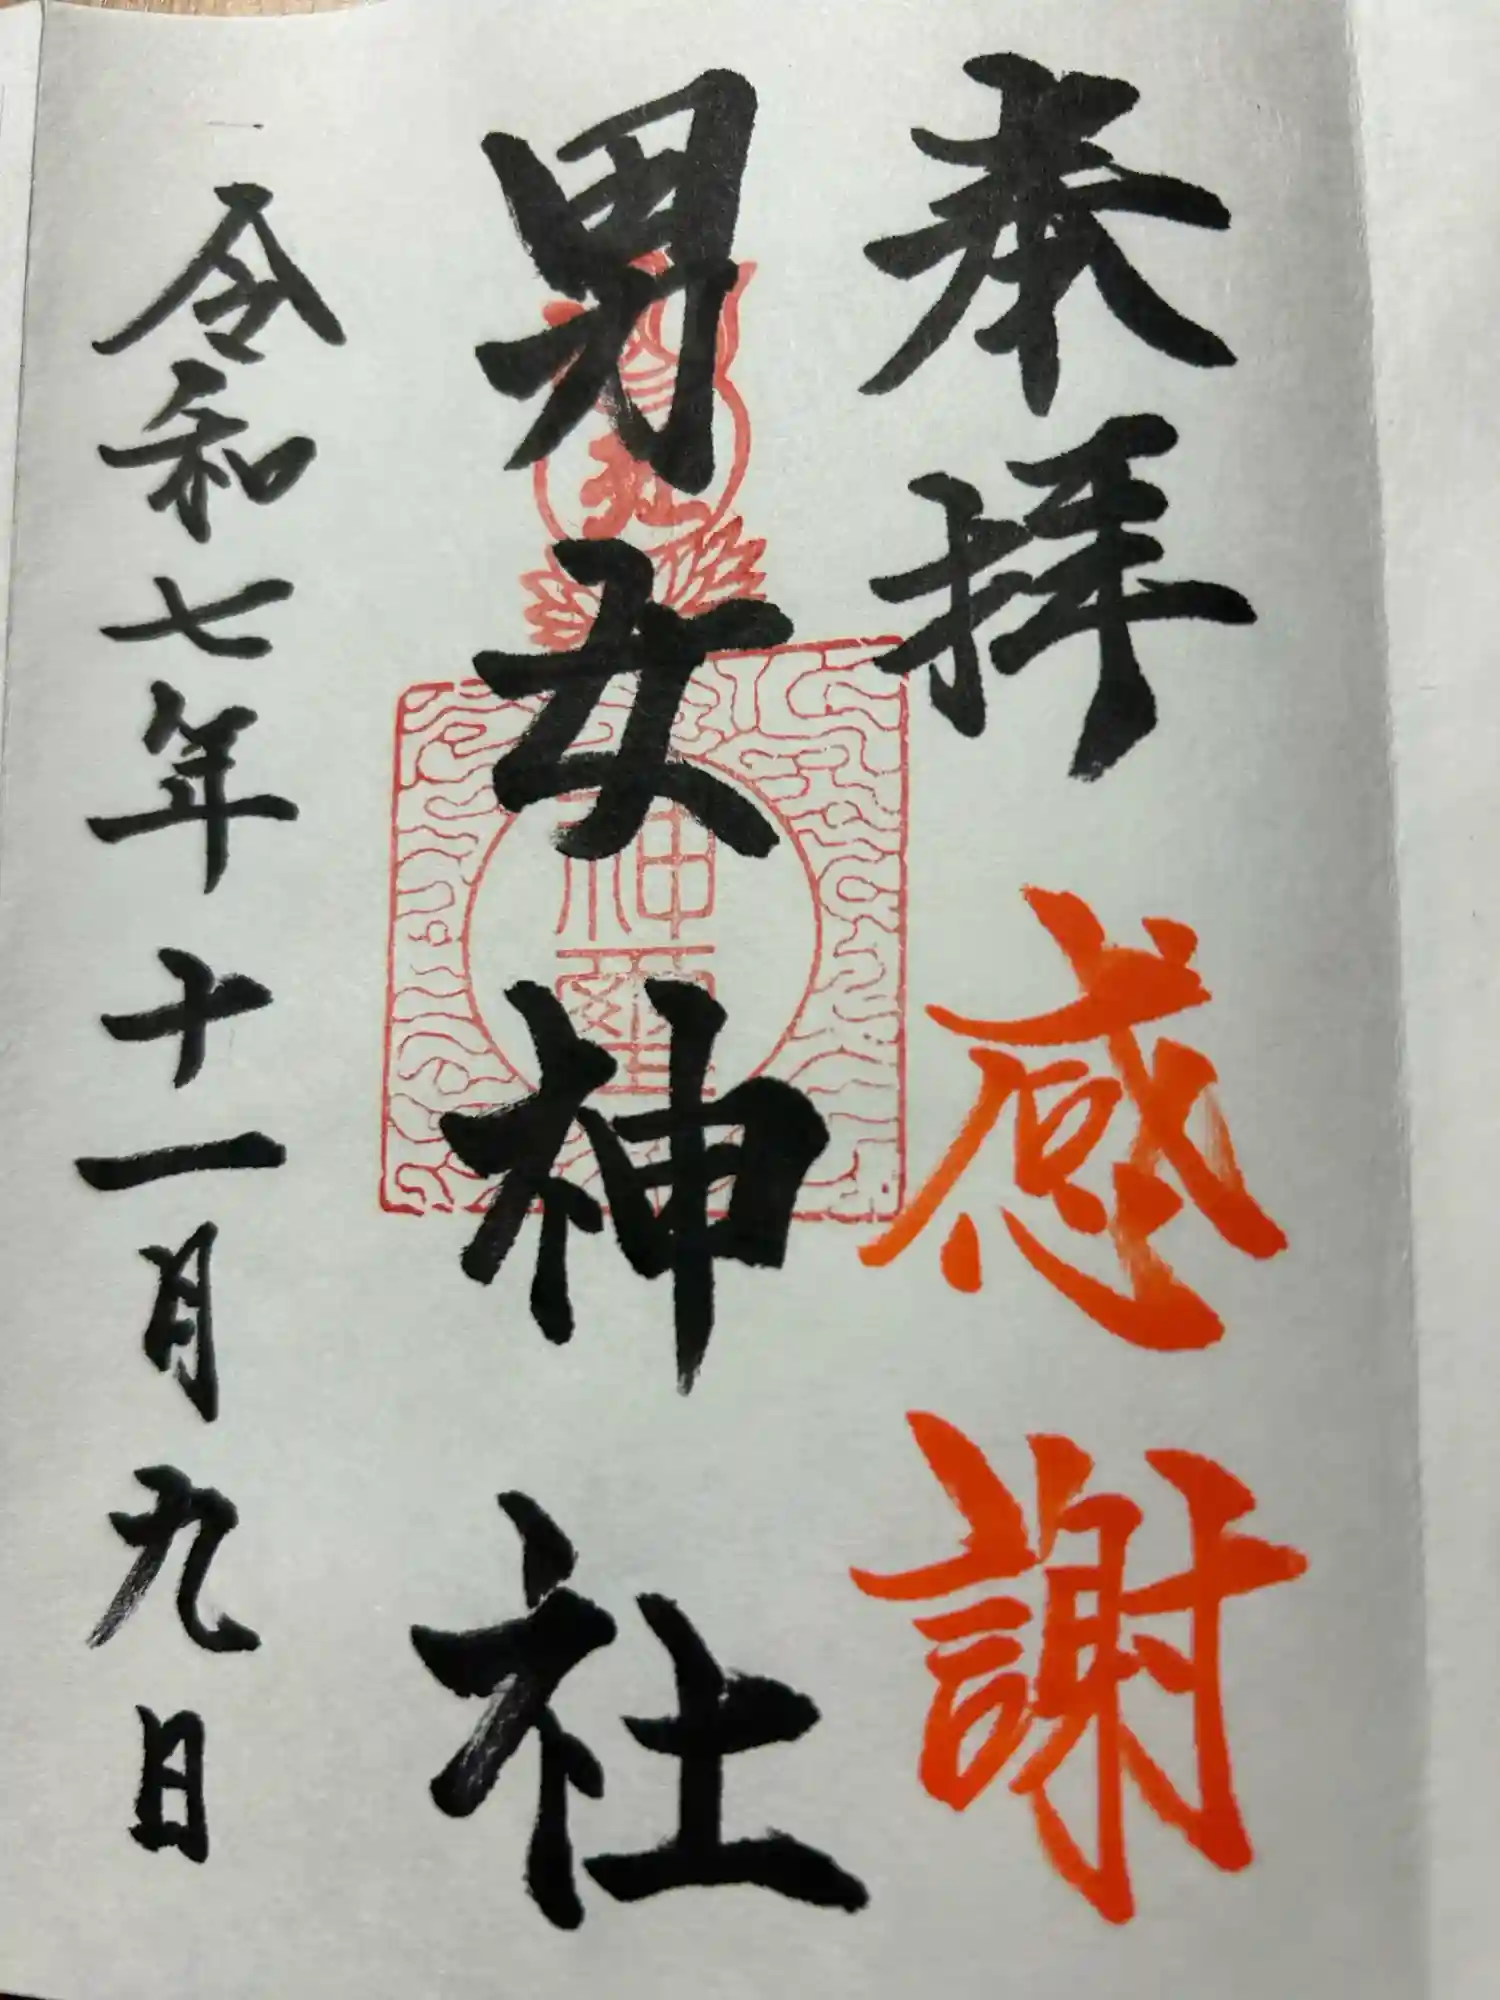 奉拝 感謝
男女神社
神璽
令和七年十一月九日